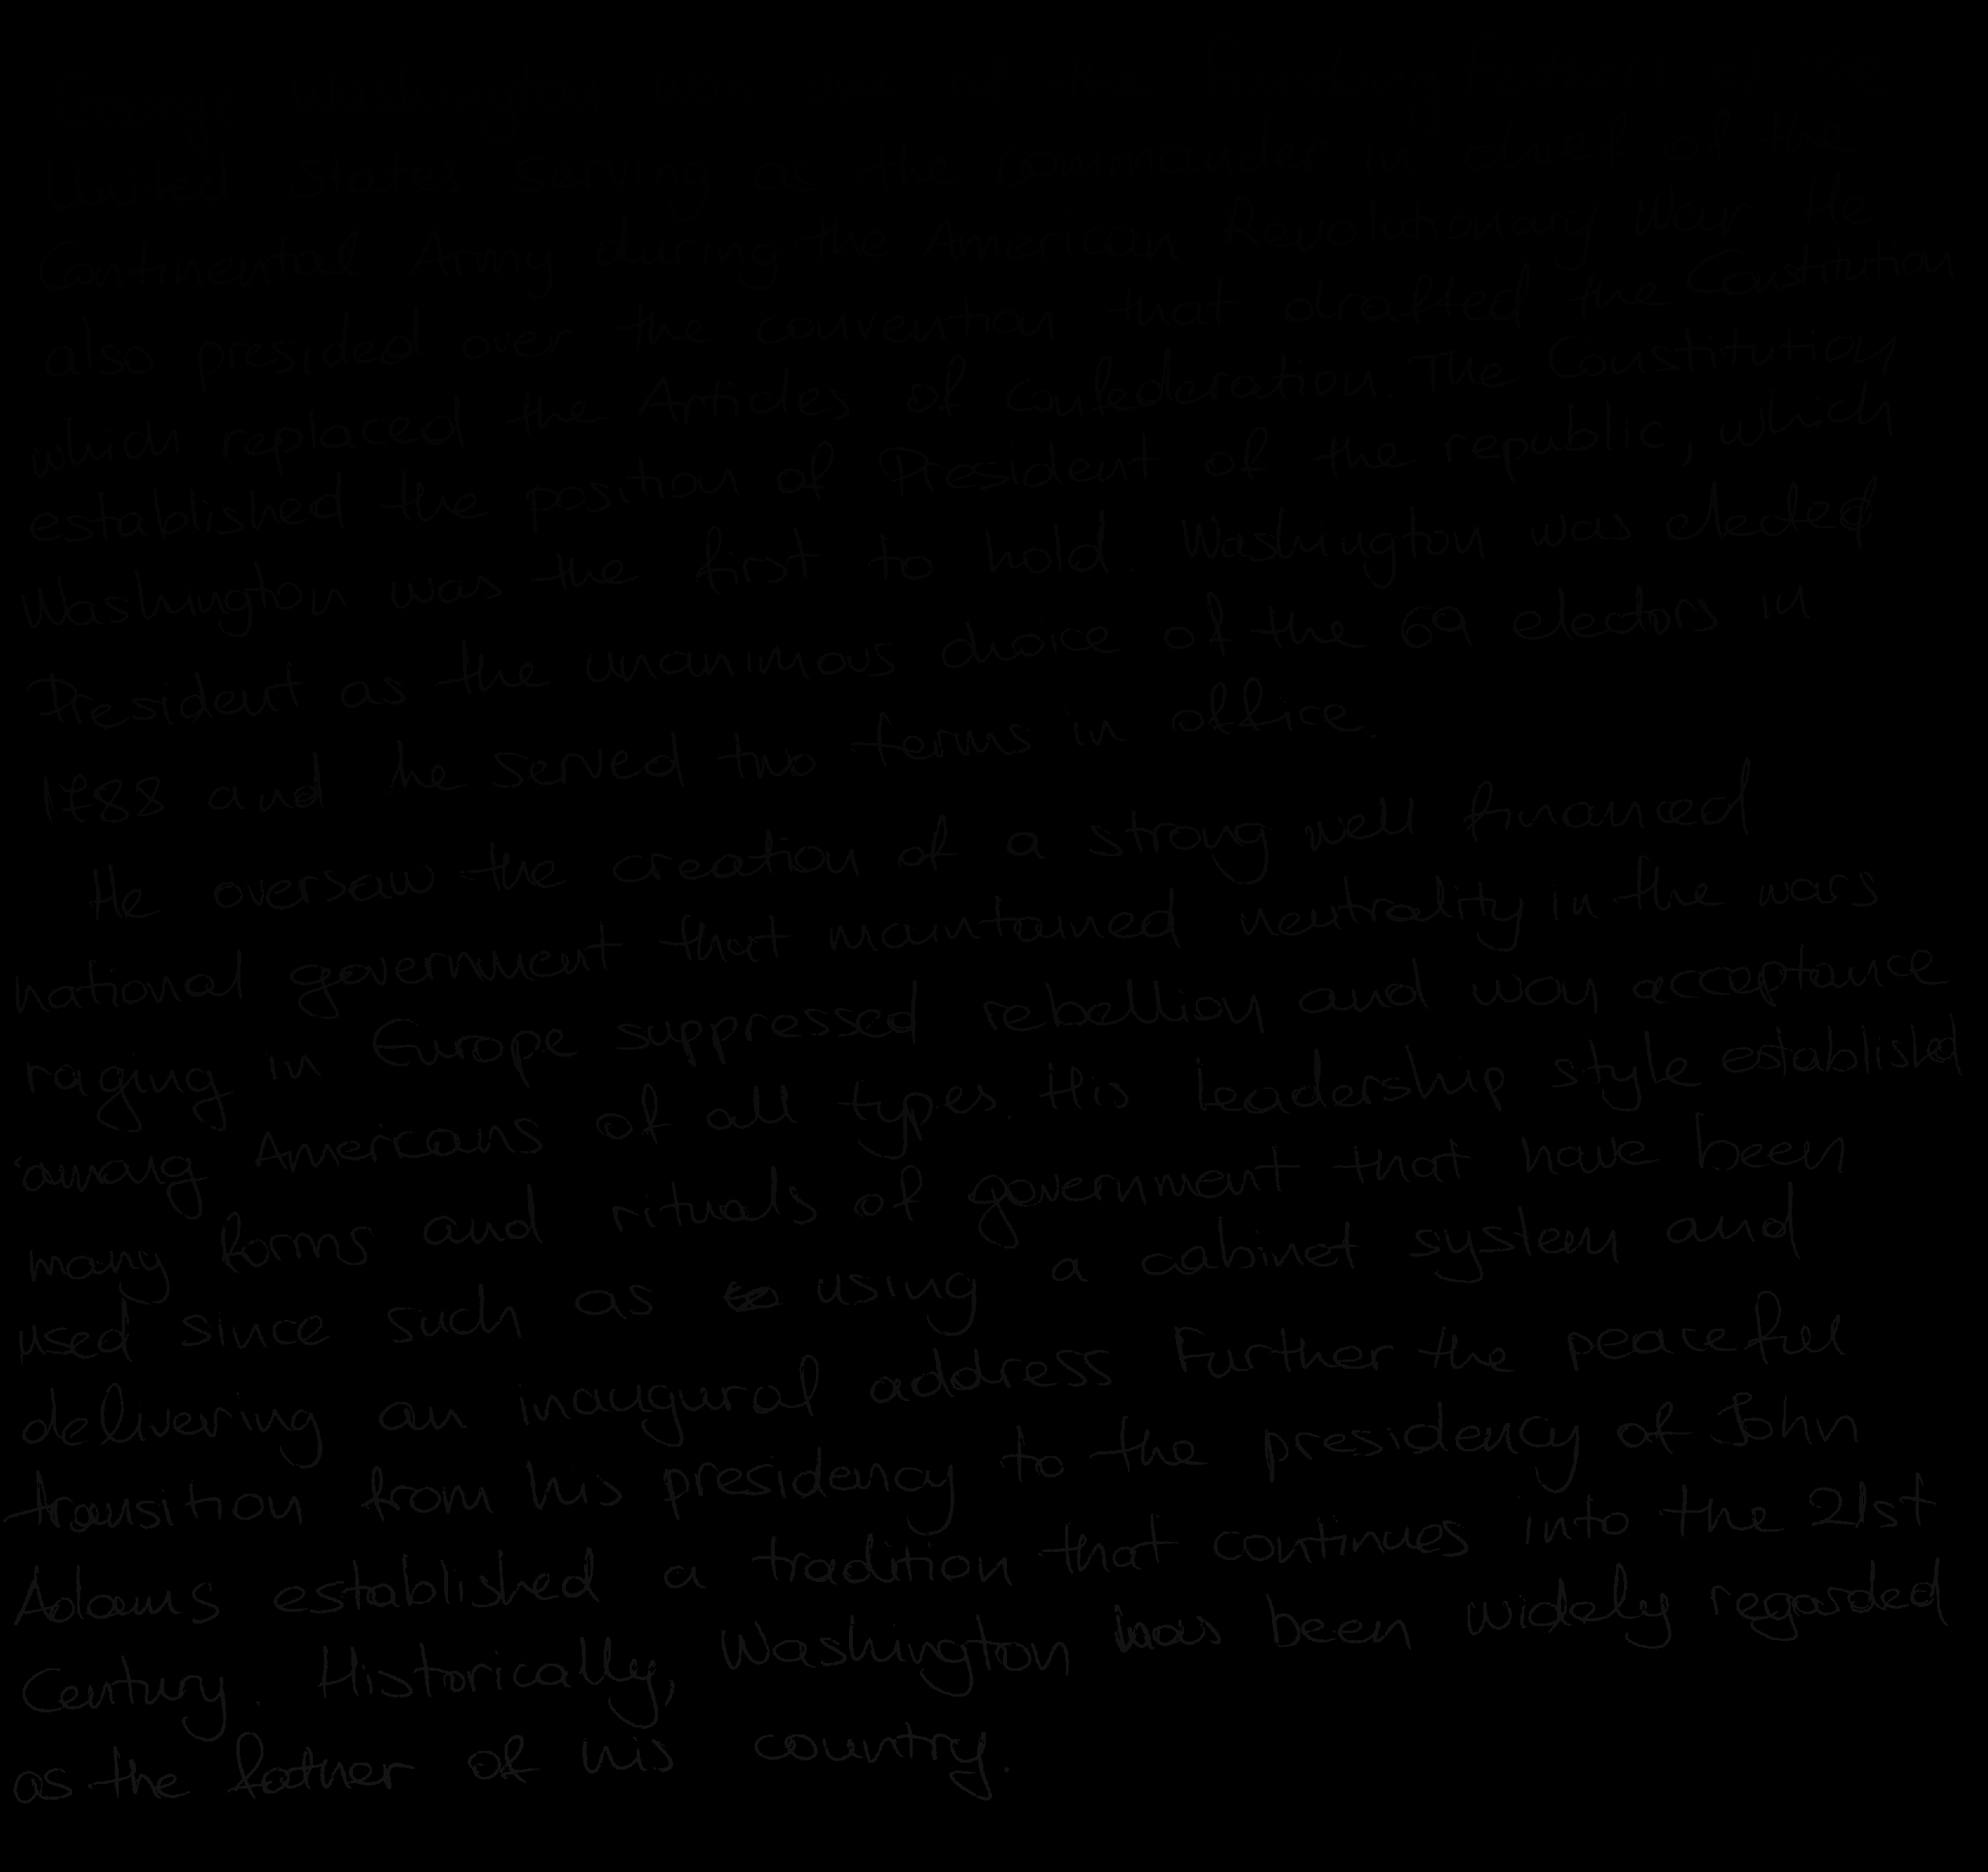 United States serving as the commander in chief of the
Continental Army during the American Revolutionary War He
also presided over the convention that drafted the Constitution
which replaced the Articles of Confederation. The Constitution
established the position of President of the republic, which
Washington was the first to hold. Washington was elected
President as the unanimous choice of the 69 electors in
1788 and he served two terms in office.
He oversaw the creation of a strong well financed
national government that maintained neutrality in the wars
raging in Europe suppressed rebellion and won acceptance
among Americans of all types. His leadership style established
many forms and rituals of government that have been
used since such as using a cabinet system and
delivering an inaugural address Further the peaceful
transition from his presidency to the presidency of John
Adams established a tradition that continues into the 21st
Century. Historically, Washington has been widely regarded
as the father of his country.